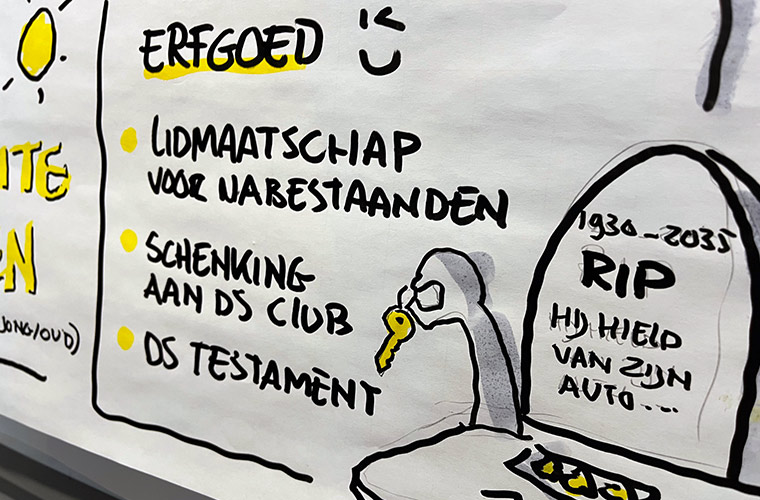 ERFGOED
LIDMAATSCHAP
VOOR NABESTAANDEN
SCHENKING
AAN DS CLUB
DS TESTAMENT
JONG/OUD)
1930-2035
RIP
HIJ HIELD
VAN ZIJN
AUTO....